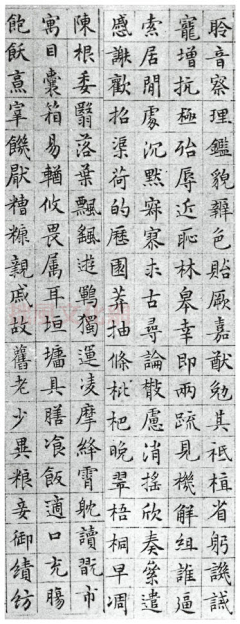 聆音察理鑑貌辨色貽厥嘉猷勉其祗植省躬譏誡
寵增抗極殆辱近恥林皋幸即兩疏見機解組誰逼
索居閒處沉默寂寥求古尋論散慮消搖欣奏累遣
慼謝歡招渠荷的歷園莽抽條枇杷晚翠梧桐早凋
陳根委翳落葉飄颻遊鵾獨運凌摩絳霄耽讀翫市
寓目囊箱易輶攸畏属耳垣墻具膳飡飯適口充腸
飽飫烹宰饑厭糟糠親戚故舊老少異糧妾御績紡